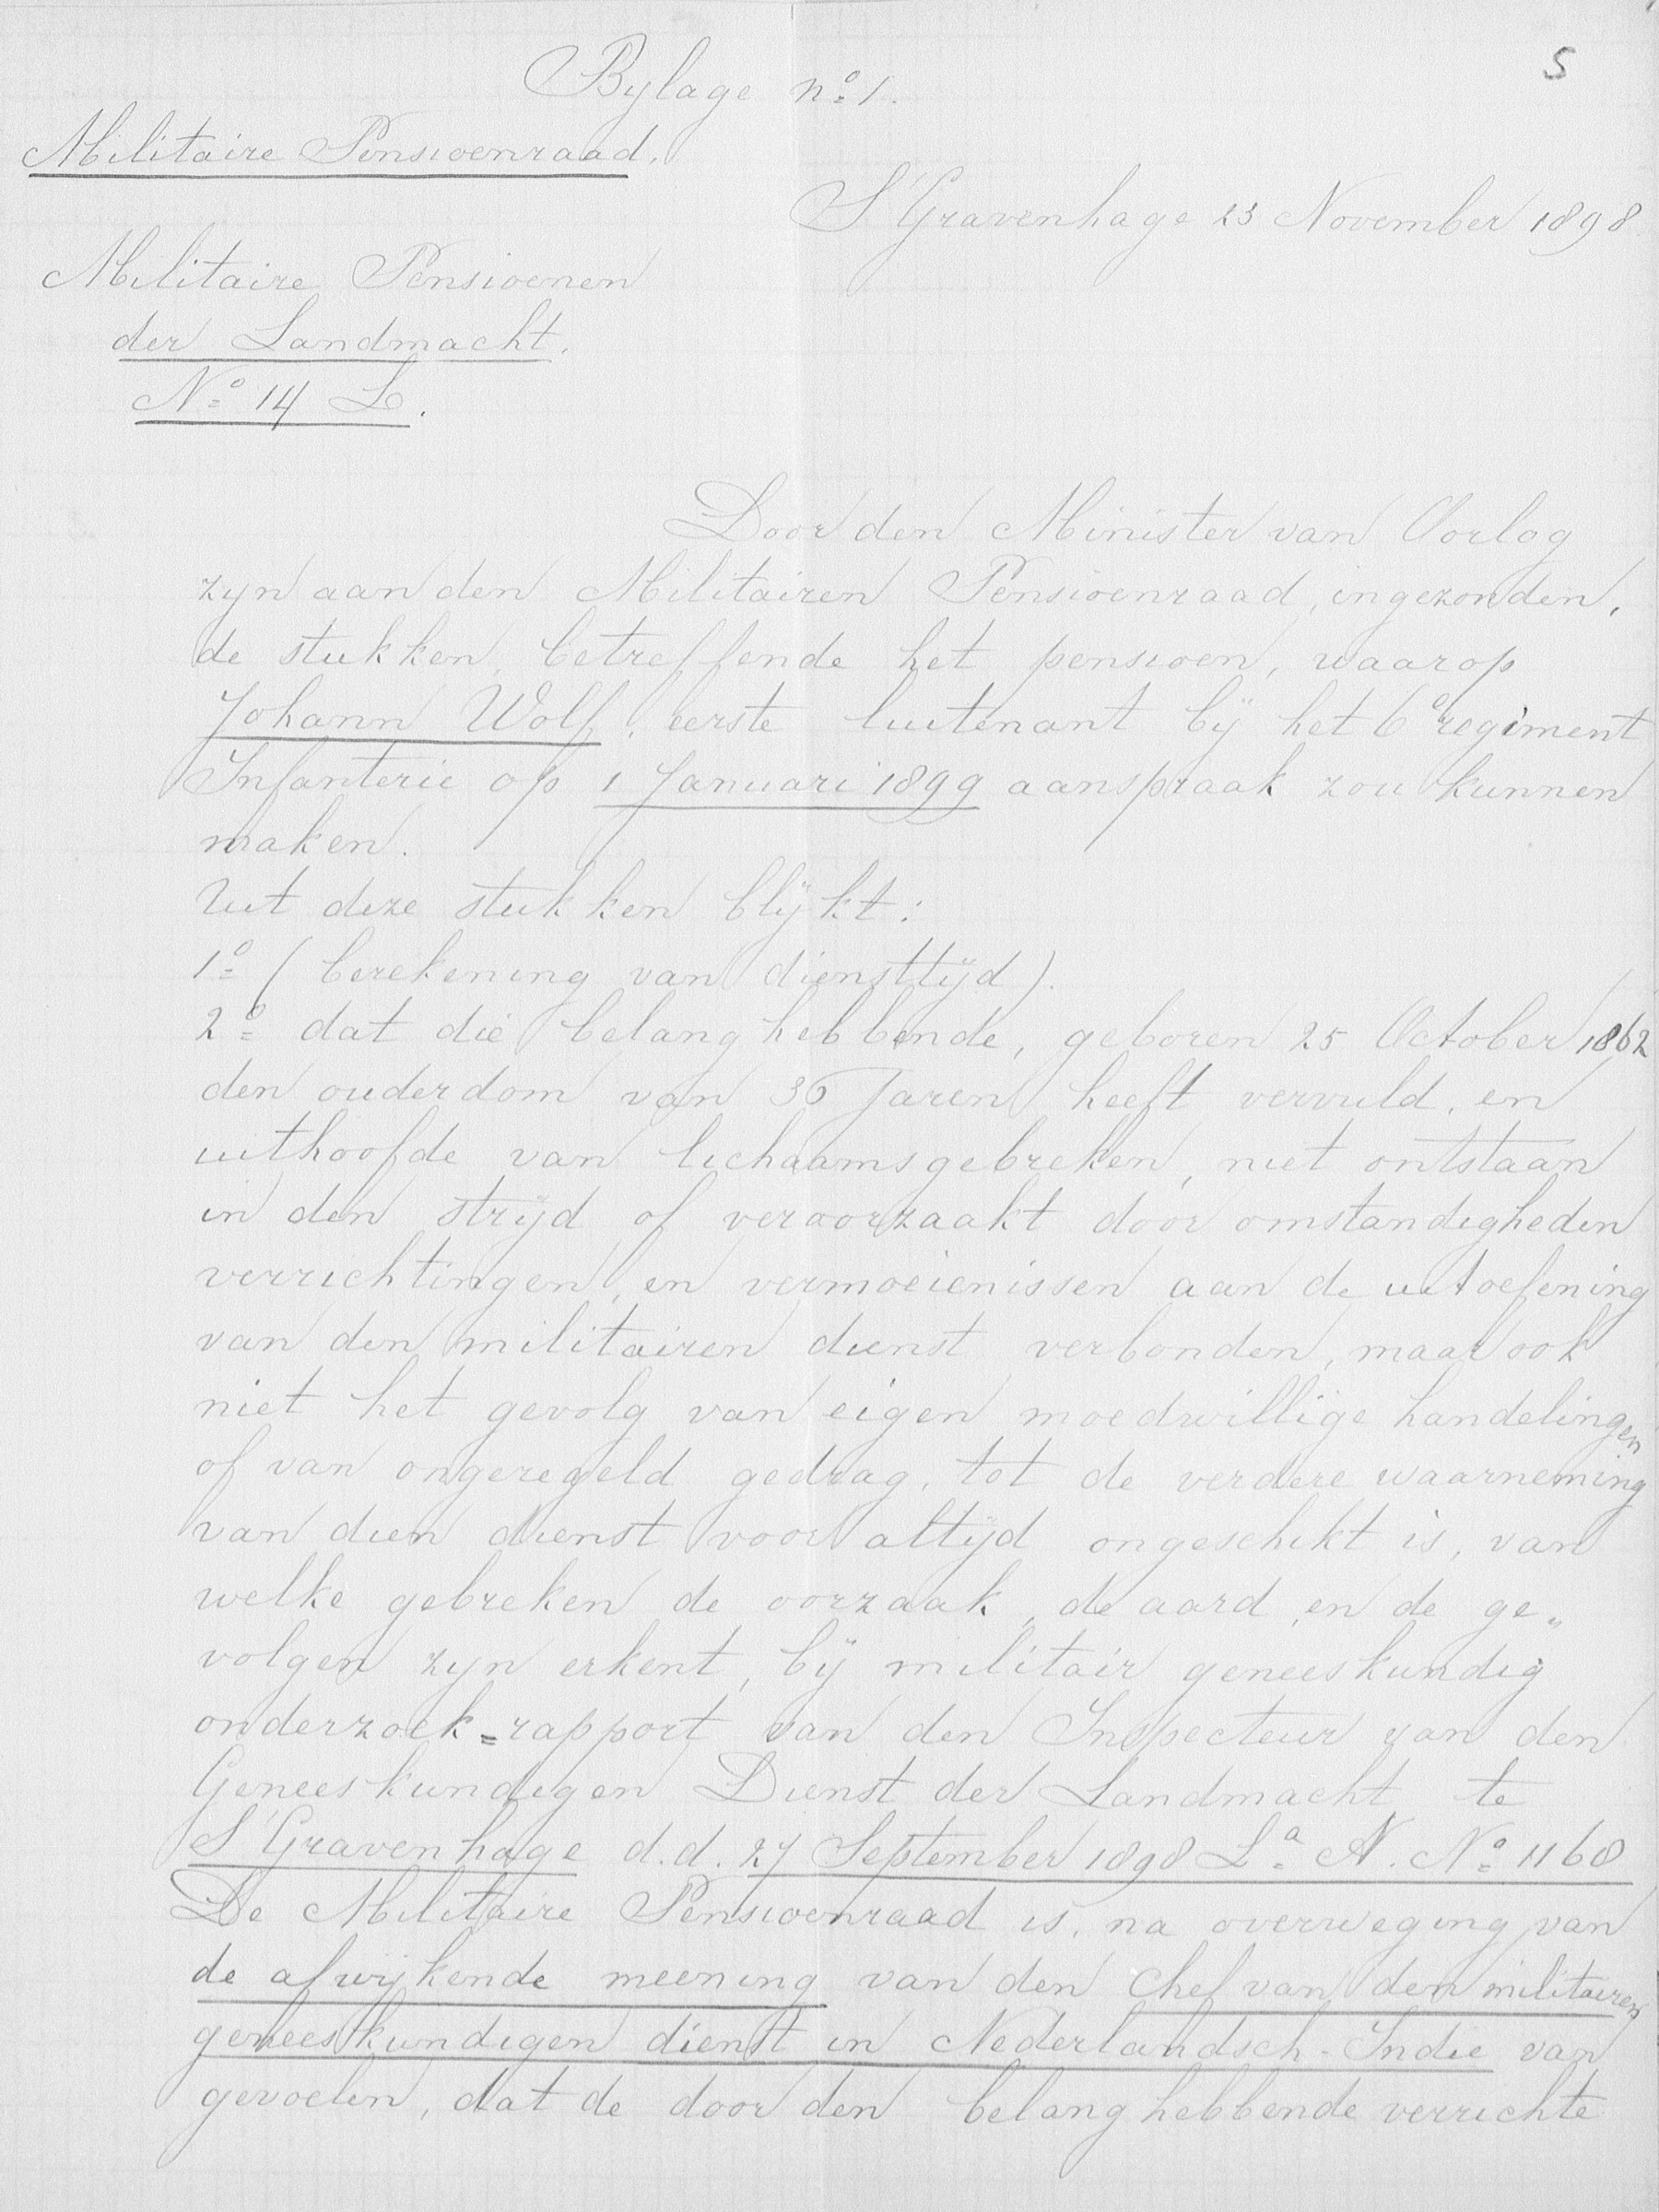 5
Bylage no 1.
Militaire Pensioenraad.
S'Gravenhage 23 November 1898
Militaire Pensioenen
der Landmacht.
No 14 L.
Door den Minister van Oorlog
zyn aan den Militairen Pensioenraad, ingezonden,
de stukken, betreffende het pensioen, waarop
Johann Wolf, eerste luitenant bij het 6e regiment
Infanterie op 1 Januari 1899 aanspraak zou kunnen
maken.
Uit deze stukken blijkt:
1o (berekening van diensttijd).
2o dat die belanghebbende, geboren 25 October 1862
den ouderdom van 36 Jaren heeft vervuld, en
uithoofde van lichaamsgebreken, niet ontstaan
in den strijd of veroorzaakt door omstandigheden
verrichtingen, en vermoeienissen aan de uitoefening
van den militairen dienst verbonden, maar ook
niet het gevolg van eigen moedwillige handelingen
of van ongeregeld gedrag, tot de verdere waarneming
van dien dienst voor altijd ongeschikt is, van
welke gebreken de oorzaak, de aard, en de ge„
volgen zyn erkent, bij militair geneeskundig
onderzoek=rapport van den Inspecteur van den
Geneeskundigen Dienst der Landmacht te
S'Gravenhage d.d. 27 September 1898 La A. No 1168
De Militaire Pensioenraad is, na overweging van
de afwijkende meening van den Chef van den militairen
geneeskundigen dienst in Nederlandsch-Indie van
gevoelen, dat de door den belanghebbende verrichte